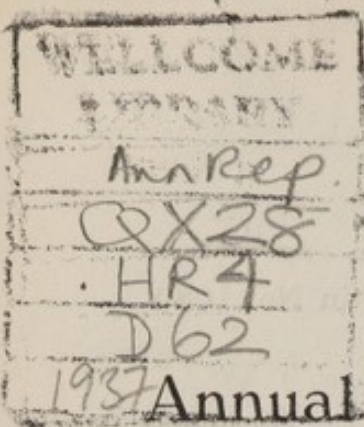 WELLCOME
LIBRARY
Ann Rep.
QX28
.HR4
D62
1937 Annual